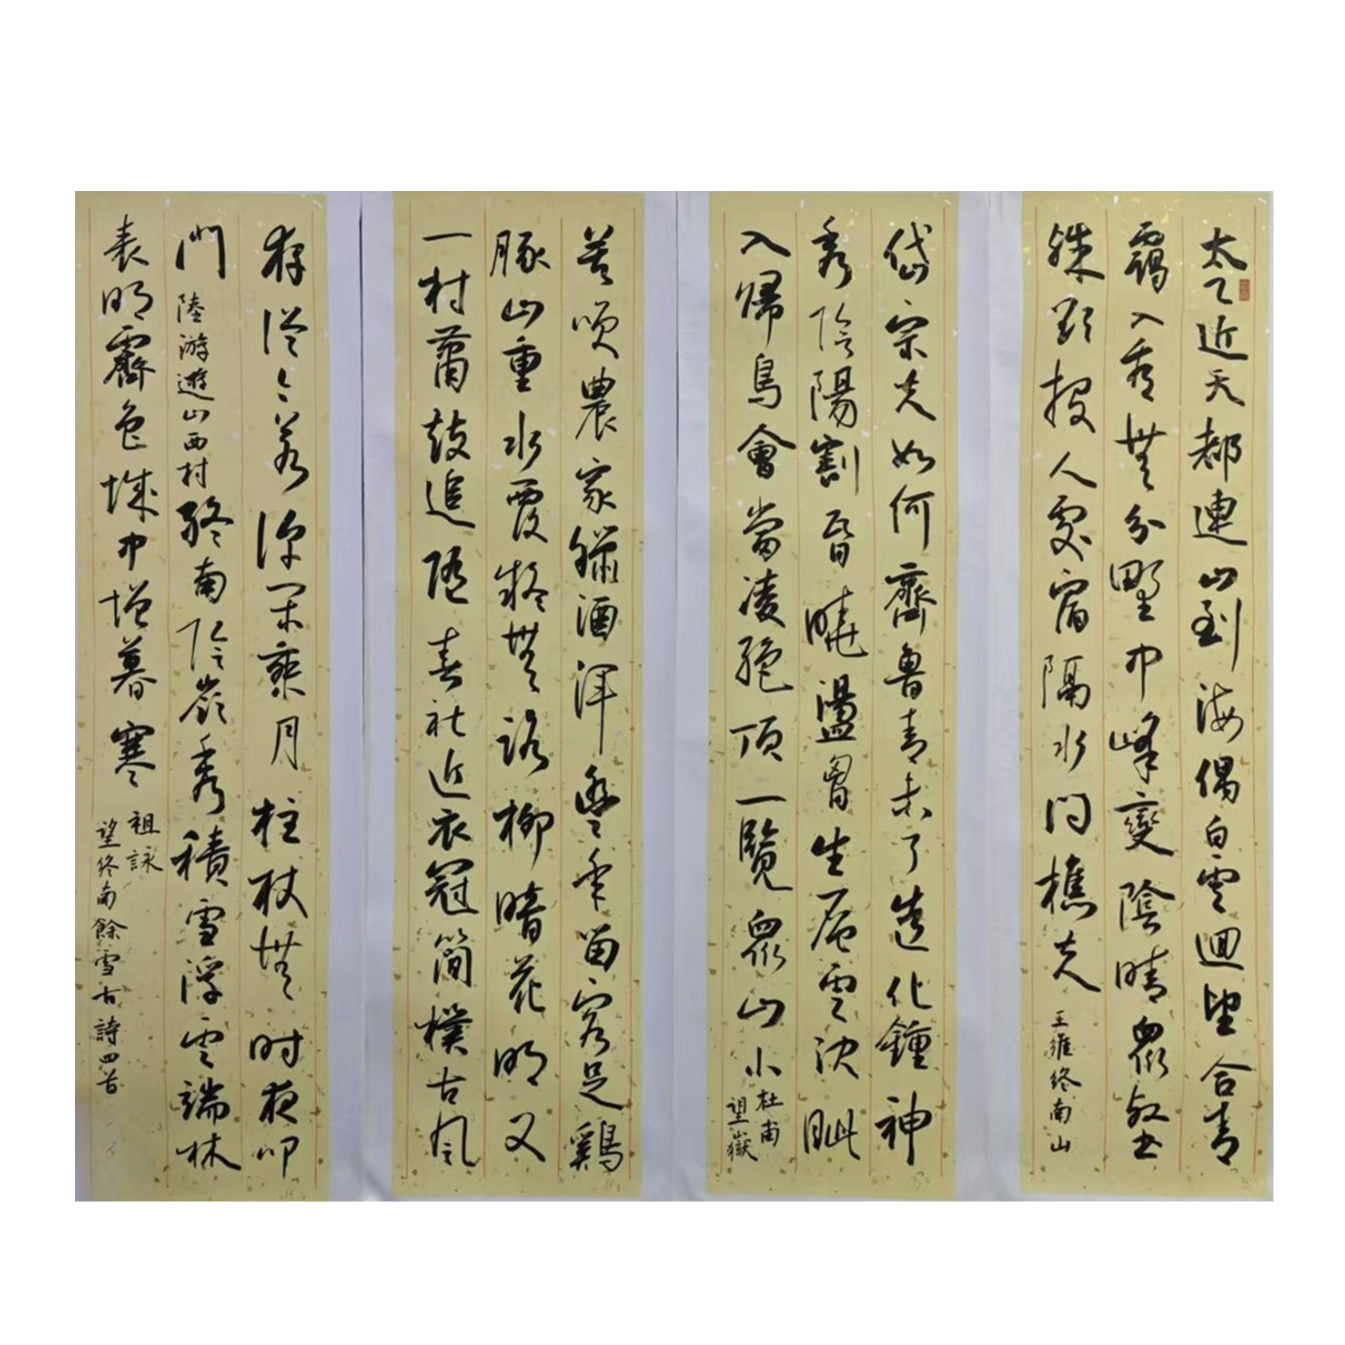 太乙近天都連山到海偶白雲迴望合青
靄入看無分野中峰變陰晴衆壑
殊欲投人處宿隔水問樵夫
王維終南山
岱宗夫如何齊魯青未了造化鍾神
秀陰陽割昏曉盪胸生層雲決眦
入歸鳥會當凌絕頂一覽衆山小
杜甫
望嶽
莫笑農家臘酒渾豐年留客足鷄
豚山重水複疑無路柳暗花明又
一村蕭鼓追隨春社近衣冠簡樸古風
存從今若許閑乘月柱杖無时夜叩
門
陸游遊山西村
終南陰嶺秀積雪浮雲端林
表明霽色城中增暮寒
祖詠
望終南餘雪古詩四首